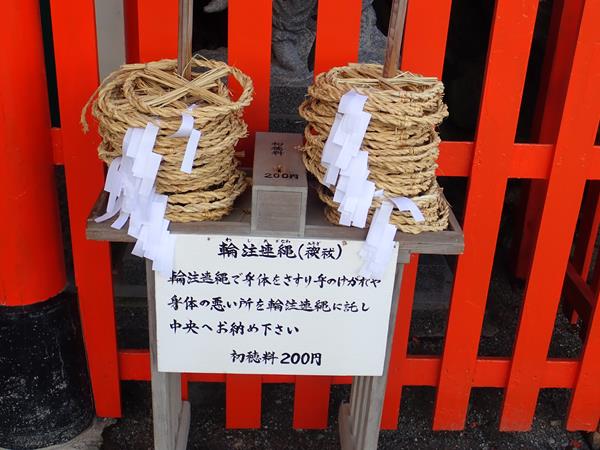 初穂料
200円
わじめなわ みそぎ
輪注連縄(禊祓)
輪注連縄で身体をさすり身のけがれや
身体の悪い所を輪注連縄に託し
中央へお納め下さい
初穂料200円